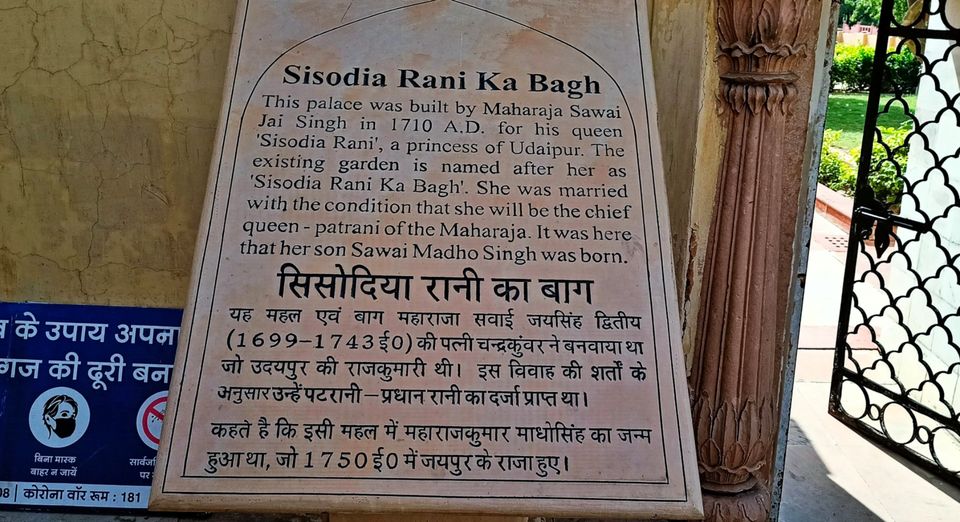 Sisodia Rani Ka Bagh
This palace was built by Maharaja Sawai
Jai Singh in 1710 A.D. for his queen
'Sisodia Rani', a princess of Udaipur. The
existing garden is named after her as
'Sisodia Rani Ka Bagh'. She was married
with the condition that she will be the chief
queen - patrani of the Maharaja. It was here
that her son Sawai Madho Singh was born.
सिसोदिया रानी का बाग
यह महल एवं बाग महाराजा सवाई जयसिंह द्वितीय
(1699–1743 ई0) की पत्नी चन्द्रकुंवर ने बनवाया था
जो उदयपुर की राजकुमारी थी। इस विवाह की शर्तों के
अनुसार उन्हें पटरानी – प्रधान रानी का दर्जा प्राप्त था।
कहते है कि इसी महल में महाराजकुमार माधोसिंह का जन्म
हुआ था, जो 1750 ई0 में जयपुर के राजा हुए।
के उपाय अपना
गज की दूरी बना
बिना मास्क
बाहर न जायें
सार्वजनि
पर
08 | कोरोना वॉर रूम : 181